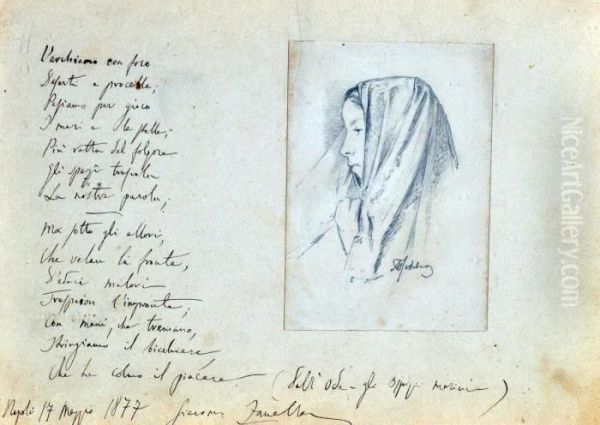 Varchiamo con foco
Deserti e procelle;
Passiamo per gioco
I mari e le stelle;
Più ratta del folgore
Gli spazi trapola
La nostra parola;
Ma sotto gli allori,
Che velan la fronte,
D'edaci malori
l'impronte;
Con mani, che tremano,
Stringiamo il bicchiere,
Che ha colmo il piacere.
(Dall'Ode - gli Ospizi marini)
Napoli 17 Maggio 1877 Giacomo Zanella
NiceArtGallery.com